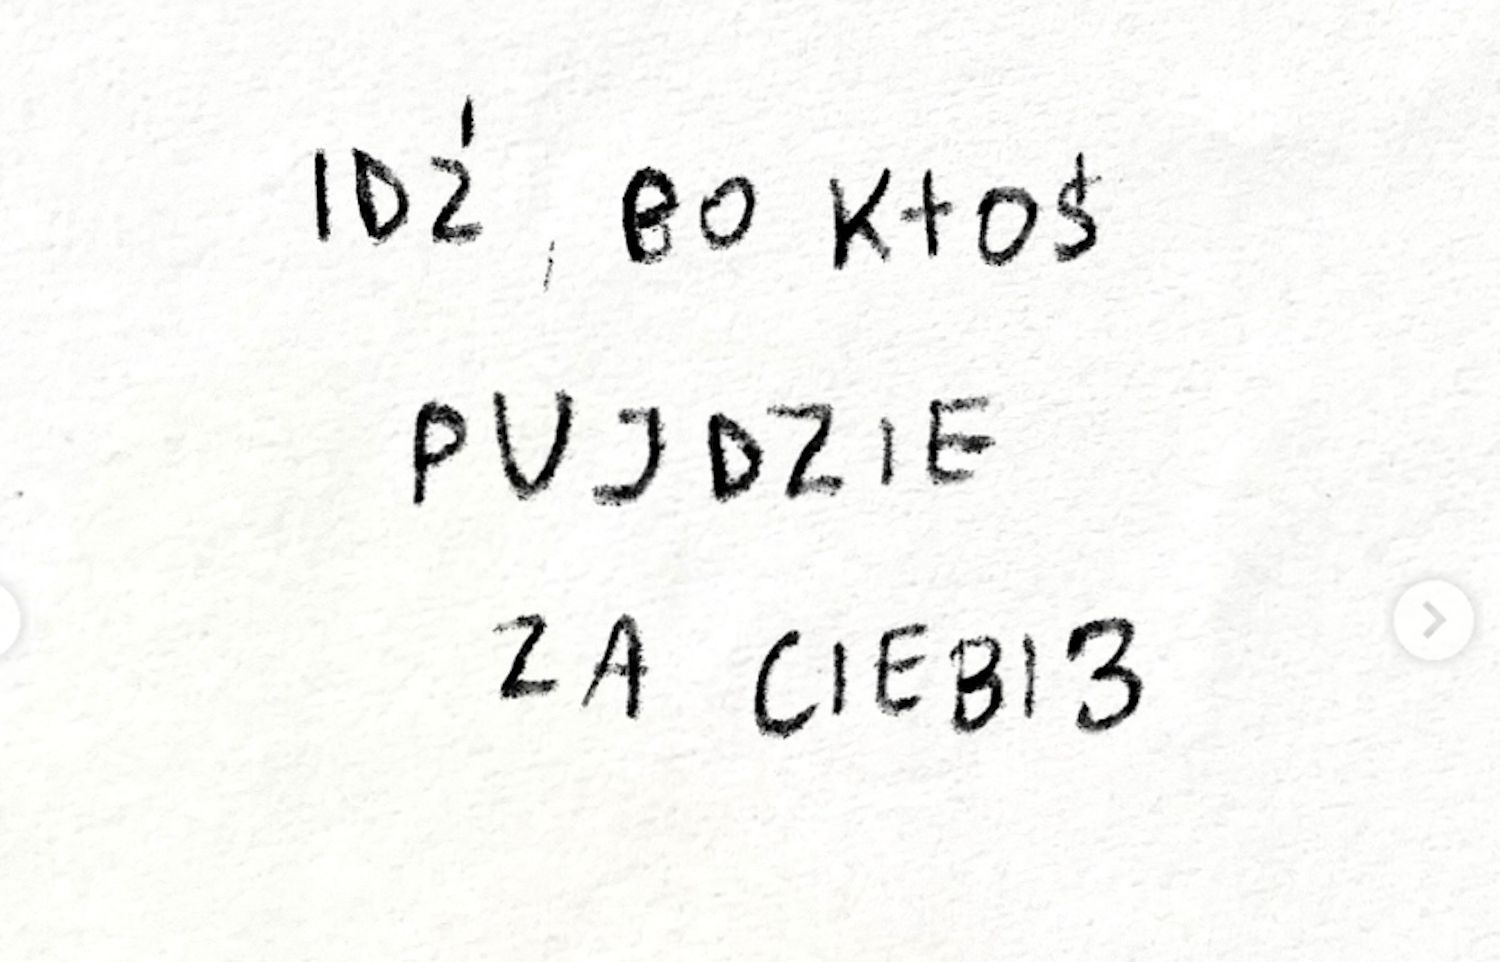 IDŹ, BO KTOŚ
PUJDZIE
ZA CIEBI3